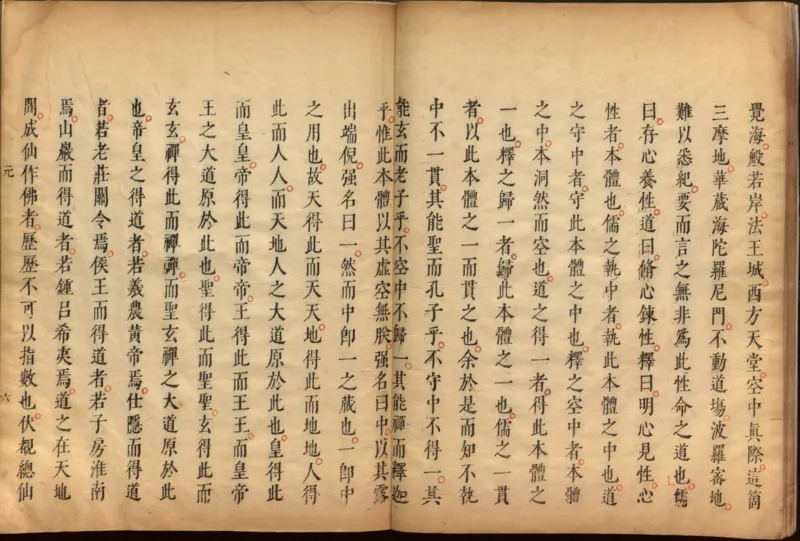 覺海般若岸法王城西方天堂空中眞際這箇
三摩地華蔵海陀羅尼門不動道塲波羅審地
難以悉紀要而言之無非爲此性命之道也儒
曰存心養性道曰脩心鍊性釋曰明心見性心
性者本體也儒之執中者執此本體之中也道
之守中者守此本體之中也釋之空中者本體
之中本洞然而空也道之得一者得此本體之
一也釋之歸一者歸此本體之一也儒之一貫
者以此本體之一而貫之也余於是而知不執
中不一貫其能聖而孔子乎不守中不得一其
能玄而老子乎不空中不歸一其能禪而釋迦
乎惟此本體以其虚空無朕强名曰中以其露
出端倪强名曰一然而中卽一之蔵也一卽中
之用也故天得此而天天地得此而地地人得
此而人人而天地人之大道原於此也皇得此
而皇皇帝得此而帝帝王得此而王王而皇帝
王之大道原於此也聖得此而聖聖玄得此而
玄玄禪得此而禪禪而聖玄禪之大道原於此
也帝皇之得道者若羲農黄帝焉仕隱而得道
者若老莊關令焉侯王而得道者若子房淮南
焉山巖而得道者若鍾吕希夷焉道之在天地
間成仙作佛者歷歷不可以指數也伏覩總仙
元
六